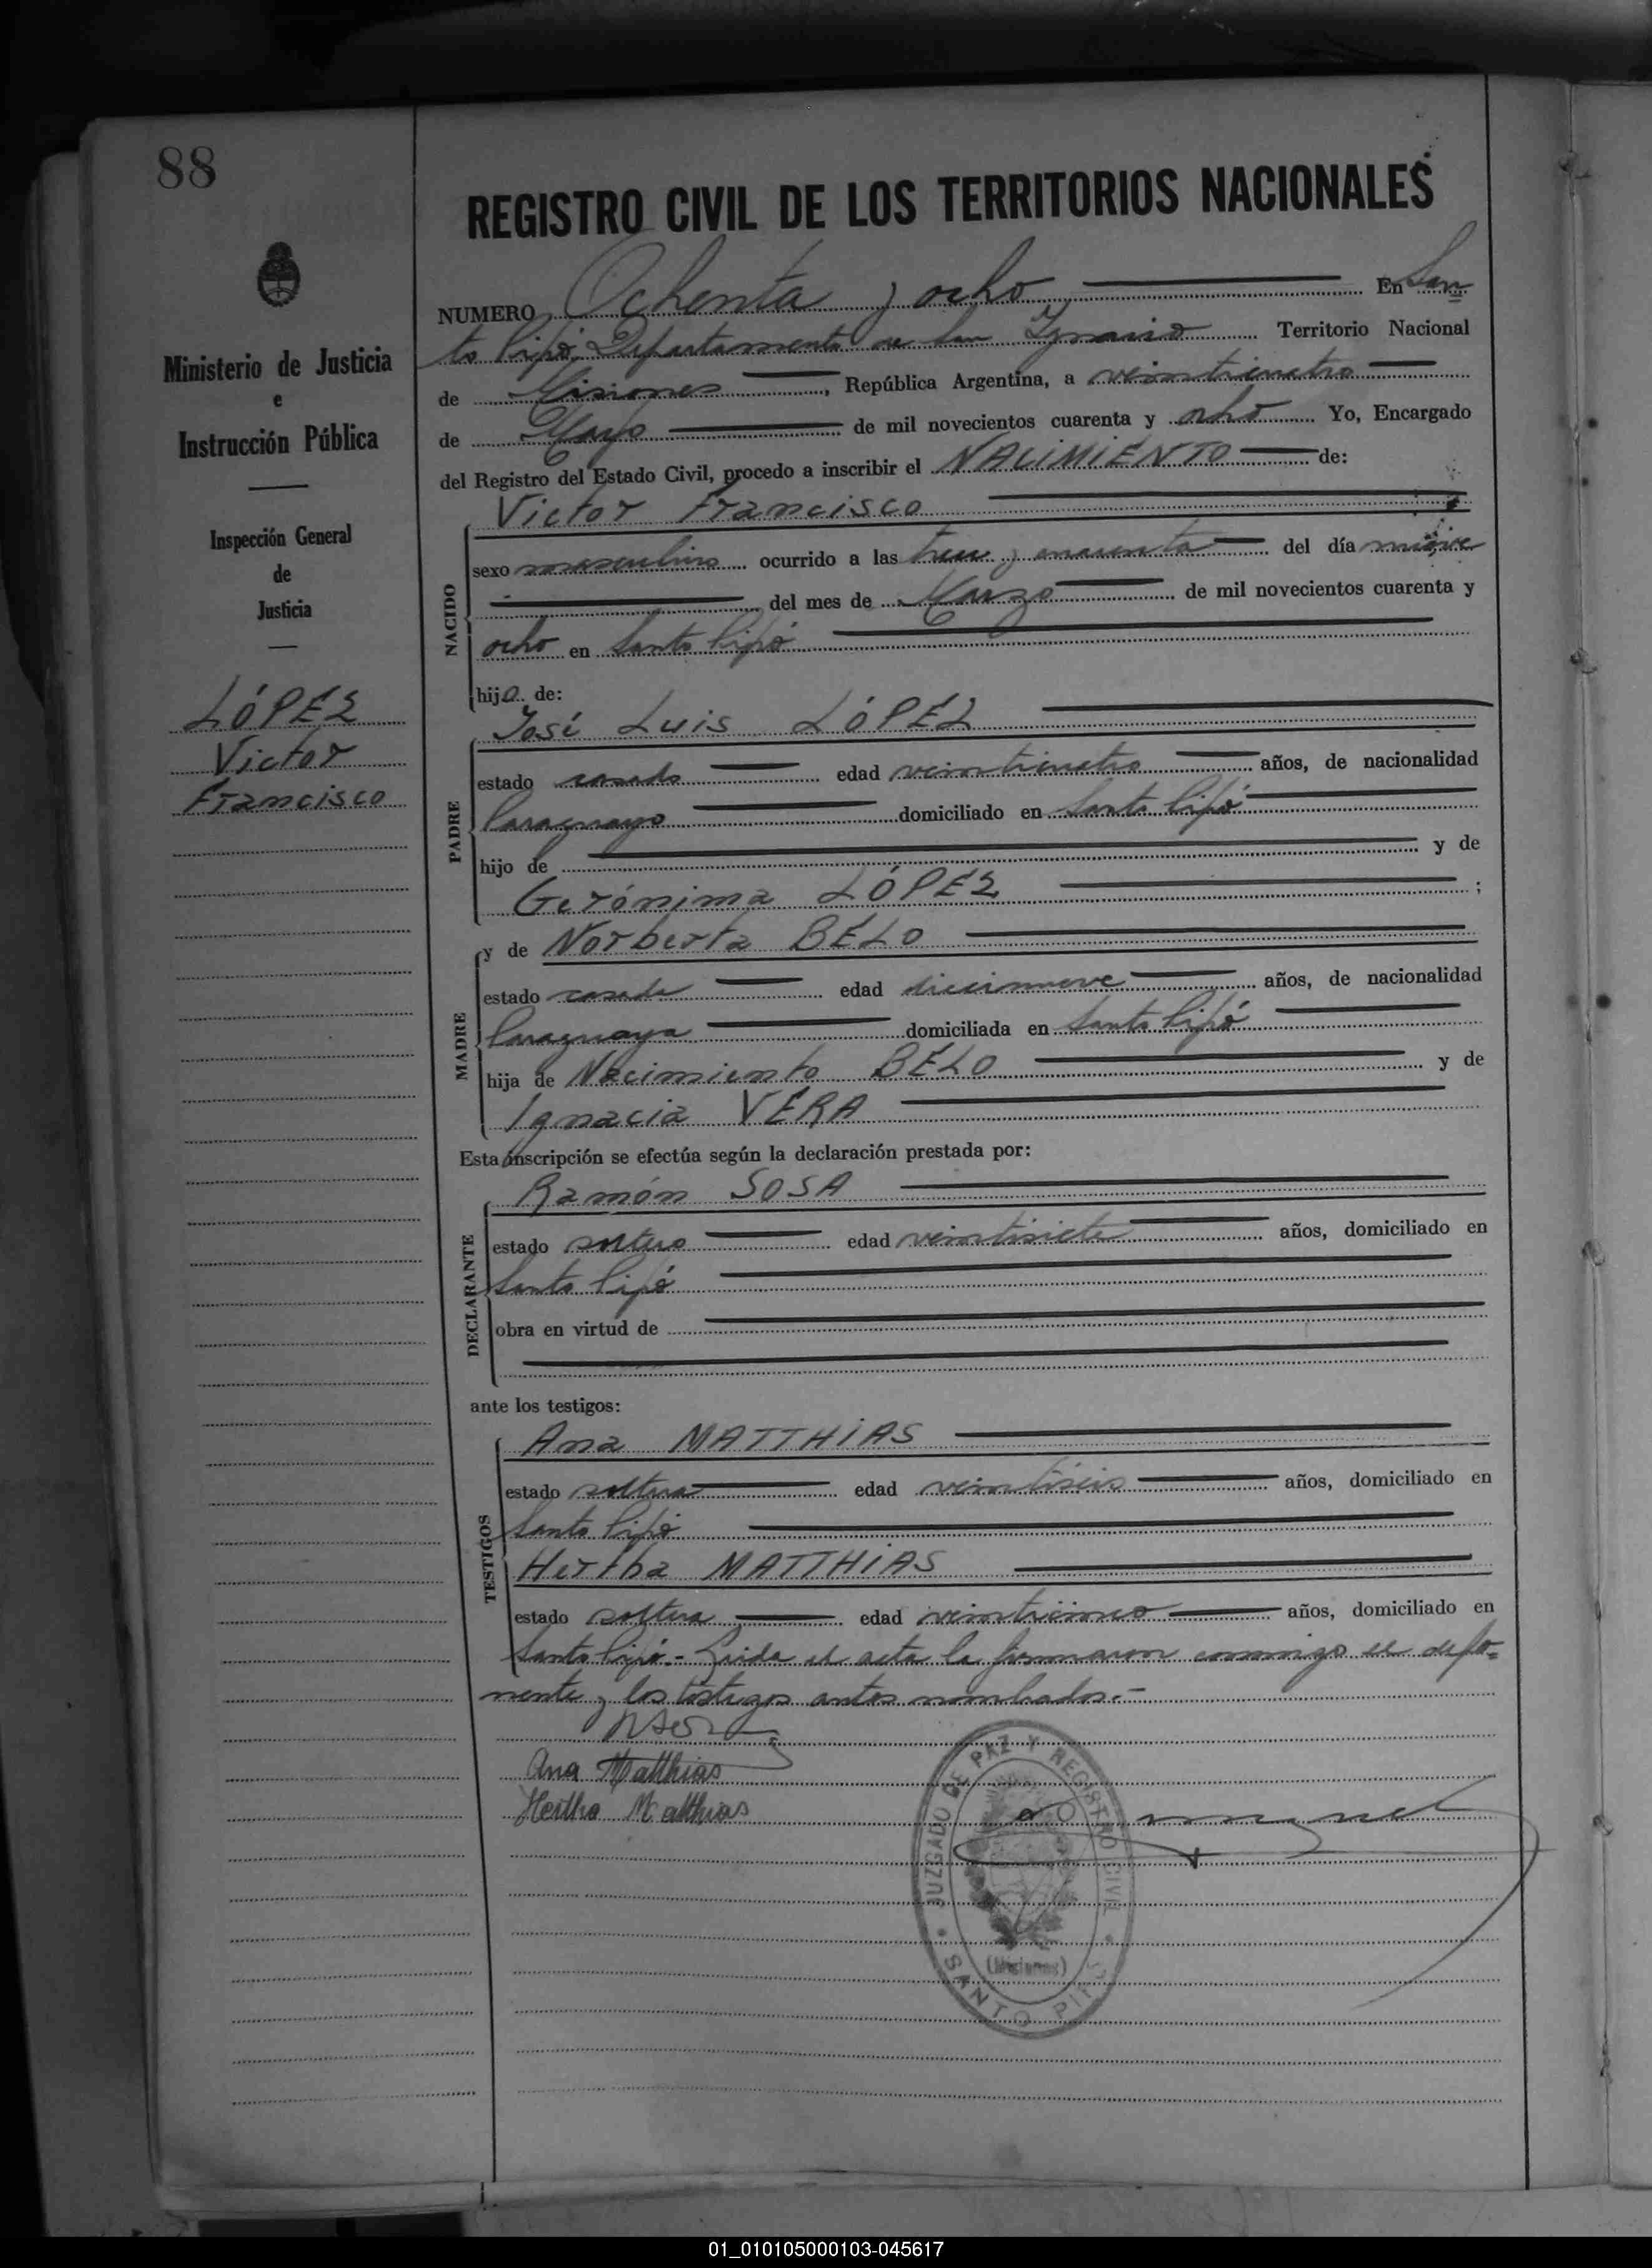 88
REGISTRO CIVIL DE LOS TERRITORIOS NACIONALES
NUMERO Ochenta y ocho En San
to Pipó, Departamento de San Ygnacio Territorio Nacional
de Misiones, República Argentina, a veinticuatro
de Mayo de mil novecientos cuarenta y ocho Yo, Encargado
del Registro del Estado Civil, procedo a inscribir el NACIMIENTO de:
Ministerio de Justicia
e
Instrucción Pública
Inspección General
de
Justicia
LÓPEZ
Victor
Francisco
NACIDO
Victor Francisco
sexo masculino ocurrido a las trece y cuarenta del día nueve
del mes de Marzo de mil novecientos cuarenta y
ocho en Santo Pipó
hijo de:
PADRE
José Luis LÓPEZ
estado casado edad veinticuatro años, de nacionalidad
Paraguayo domiciliado en Santo Pipó
hijo de y de
Gerónima LÓPEZ ;
MADRE
y de Norberta BÉLO
estado casada edad diecinueve años, de nacionalidad
Paraguaya domiciliada en Santo Pipó
hija de Nacimiento BÉLO y de
Ignacia VERA
Esta inscripción se efectúa según la declaración prestada por:
DECLARANTE
Ramón SOSA
estado soltero edad veintisiete años, domiciliado en
Santo Pipó
obra en virtud de
ante los testigos:
TESTIGOS
Ana MATTHIAS
estado soltera edad veintiseis años, domiciliado en
Santo Pipó
Hertha MATTHIAS
estado soltera edad veinticinco años, domiciliado en
Santo Pipó.- Leida el acta la firmaron conmigo el depo-
nente y los testigos antes nombrados.-
Ana Matthias
Hertha Matthias
JUZGADO DE PAZ Y REGISTRO CIVIL
(Misiones)
SANTO PIPÓ
01_010105000103-045617